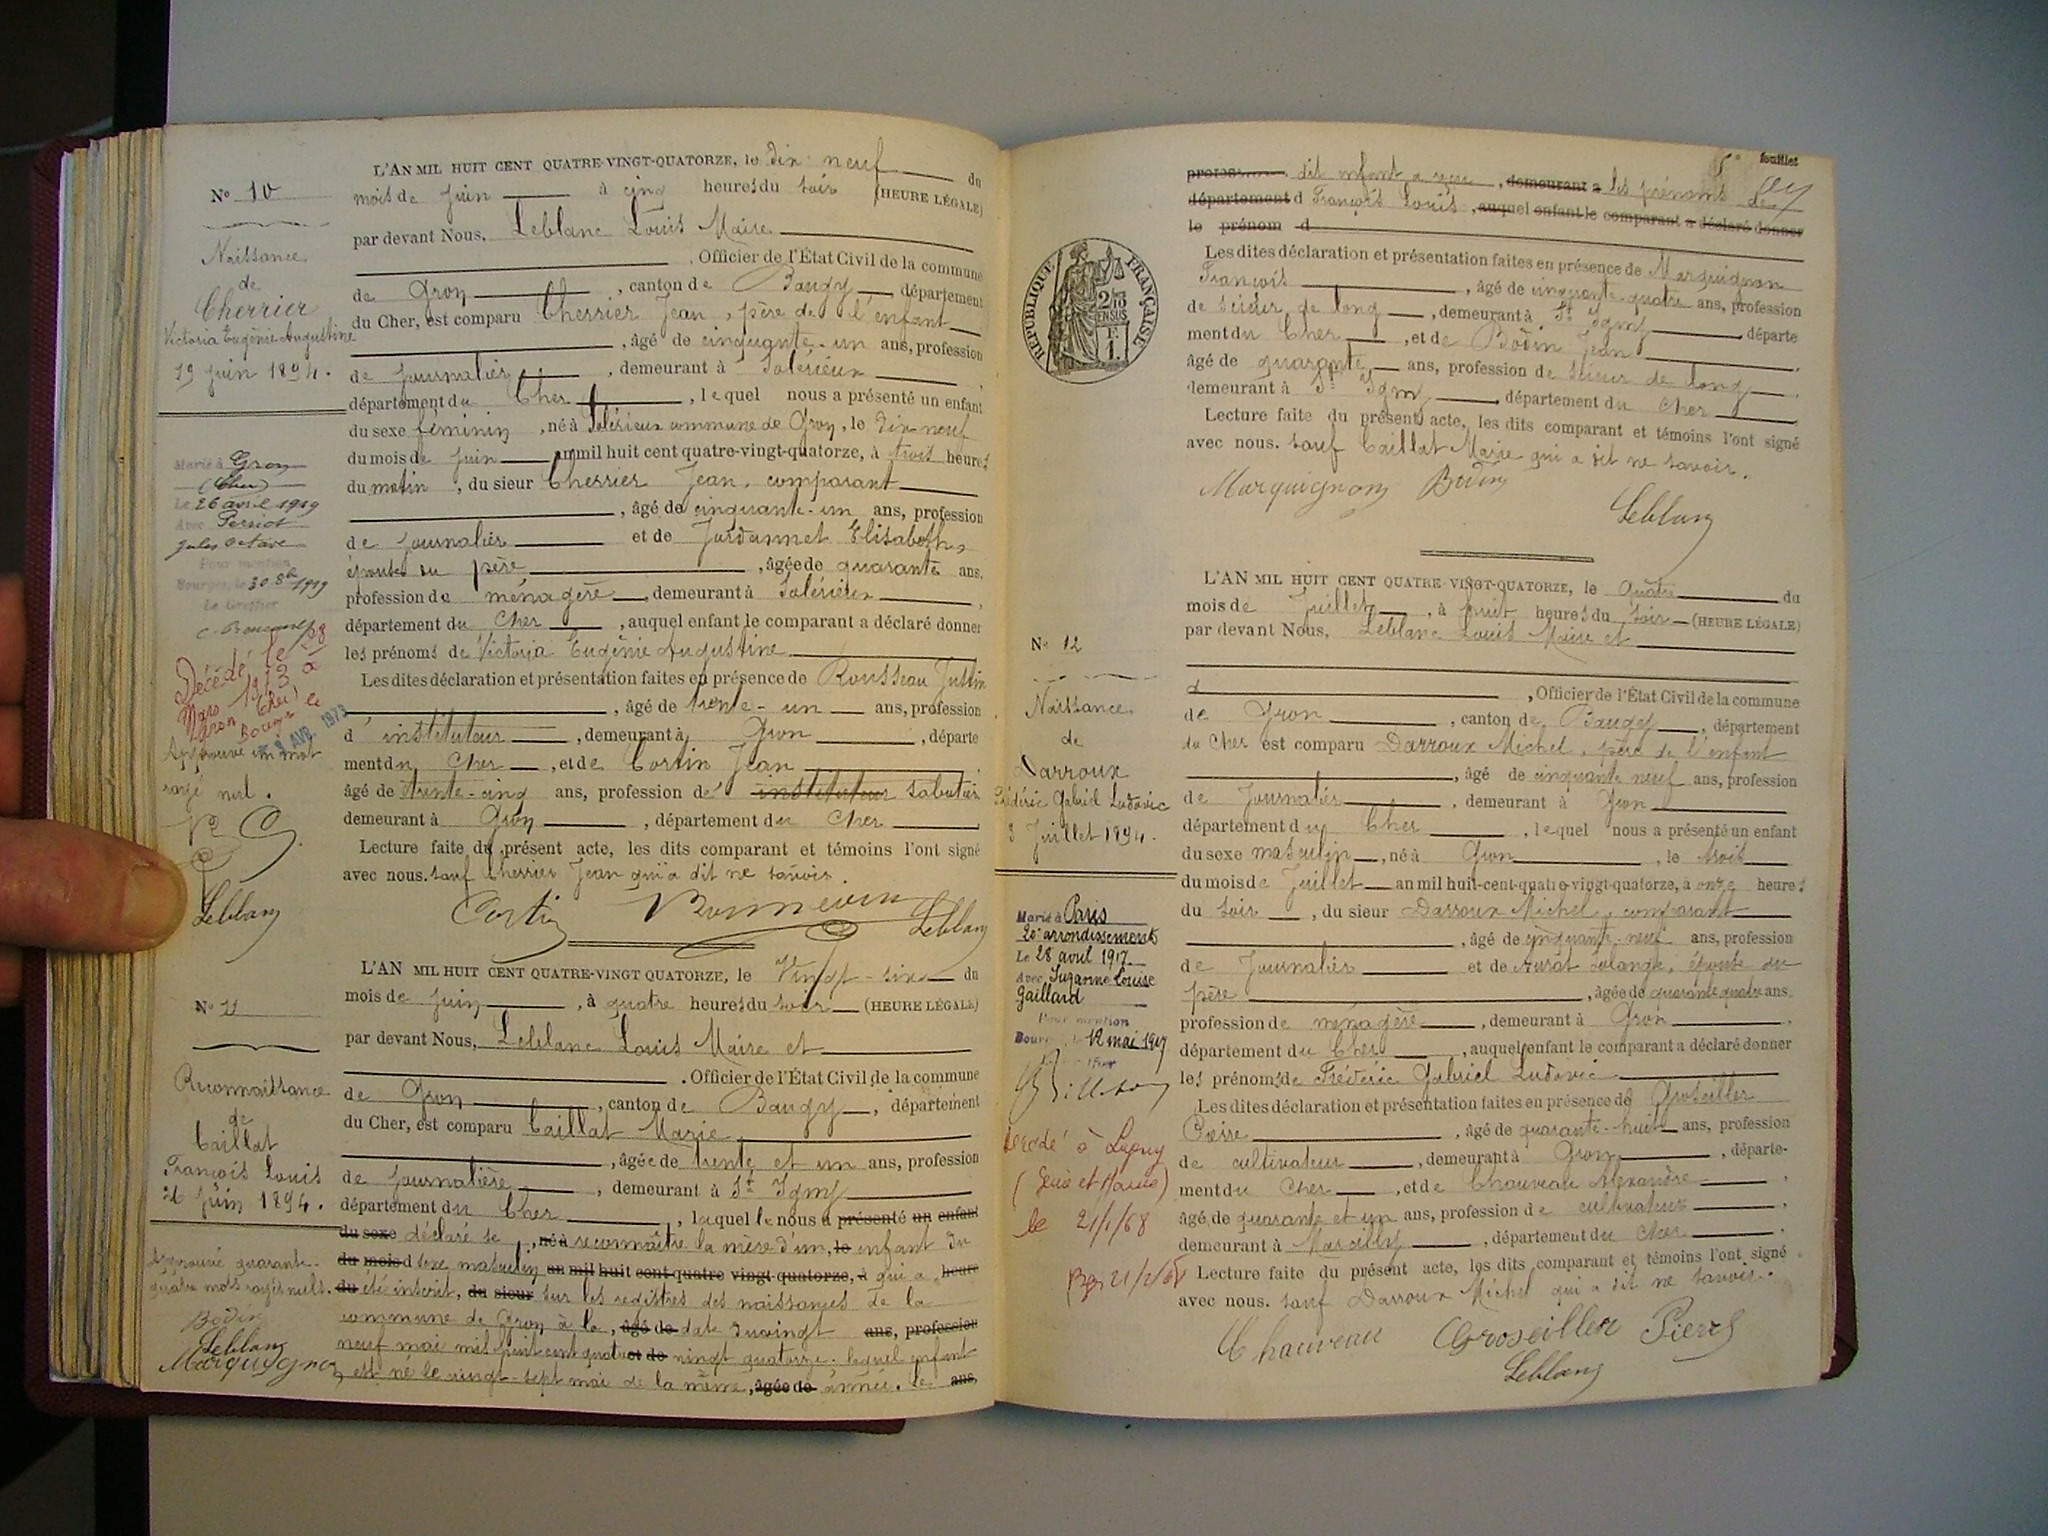 L'AN MIL HUIT CENT QUATRE-VINGT-QUATORZE, le dix neuf du
mois de Juin à cinq heures du soir (HEURE LÉGALE)
par devant Nous, Leblanc Louis Maire
, Officier de l'État Civil de la commune
de Gron, canton de Baugy département
du Cher, est comparu Cherrier Jean, père de l'enfant
, âgé de cinquante-un ans, profession
de Journalier, demeurant à Salérieux,
département du Cher, lequel nous a présenté un enfant
du sexe féminin, né à Salérieux commune de Gron, le dix neuf
du mois de Juin an mil huit cent quatre-vingt-quatorze, à trois heures
du matin, du sieur Cherrier Jean, comparant
, âgé de cinquante-un ans, profession
de Journalier et de Jurdannet Elisabeth,
épouse du père, âgée de quarante ans,
profession de ménagère, demeurant à Salérieux,
département du Cher, auquel enfant le comparant a déclaré donner
les prénoms de Victoria Eugénie Augustine
Les dites déclaration et présentation faites en présence de Rousseau Justin
, âgé de trente-un ans, profession
d'instituteur, demeurant à Gron, départe
ment du Cher, et de Cortin Jean
âgé de trente-cinq ans, profession de instituteur sabotier
demeurant à Gron, département du Cher
Lecture faite du présent acte, les dits comparant et témoins l'ont signé
avec nous. sauf Cherrier Jean qui a dit ne savoir.
Cortin Leblanc
No 10
Naissance
de
Cherrier
Victoria Eugénie Augustine
19 Juin 1894.
Marié à Gron
(Cher)
Le 26 avril 1919
Avec Perriot
Jules Octave
Pour mention
Bourges, le 30 8bre 1919
Le Greffier
Décédé le 28
Mars 1973 à
Gron (Cher)
Bourges le
AVR. 1973
Approuvé un mot
rayé nul.
Leblanc
L'AN MIL HUIT CENT QUATRE-VINGT QUATORZE, le Vingt-six du
mois de Juin, à quatre heures du soir (HEURE LÉGALE)
par devant Nous, Leblanc Louis Maire et
, Officier de l'État Civil de la commune
de Gron, canton de Baugy, département
du Cher, est comparu Caillat Marie
, âgée de trente et un ans, profession
de Journalière, demeurant à St Igny
département du Cher, laquelle nous a présenté un enfant
du sexe déclaré se, né à reconnaître la mère d'un, le enfant du
du mois d sexe masculin an mil huit cent quatre vingt quatorze, à qui a heure
du été inscrit, du sieur sur les registres des naissances de la
commune de Gron à la, âgé de date du vingt ans, profession
neuf mai mil huit cent quatre et de vingt quatorze, lequel enfant
est né le vingt-sept mai de la même, âgée de année. Le ans,
No 11
Reconnaissance
de
Caillat
François Louis
26 Juin 1894.
Approuvé quarante-
quatre mots rayés nuls.
Bodin
Leblanc
Marquignon
feuillet
profession dit enfant a reçu, demeurant à les prénoms de
département d François Louis, auquel enfant le comparant a déclaré donner
le prénom d
Les dites déclaration et présentation faites en présence de Marquignon
François, âgé de cinquante quatre ans, profession
de scieur de long, demeurant à St Igny départe
ment du Cher, et de Bodin Jean
âgé de quarante ans, profession de scieur de long,
demeurant à St Igny, département du Cher
Lecture faite du présent acte, les dits comparant et témoins l'ont signé
avec nous. sauf Caillat Marie qui a dit ne savoir.
Marquignon Bodin
Leblanc
RÉPUBLIQUE FRANÇAISE
2/10
EN SUS
L'AN MIL HUIT CENT QUATRE-VINGT-QUATORZE, le Quatre du
mois de Juillet, à huit heures du soir (HEURE LÉGALE)
par devant Nous, Leblanc Louis Maire et
, Officier de l'État Civil de la commune
de Gron, canton de Baugy, département
du Cher est comparu Darroux Michel, père de l'enfant
, âgé de cinquante neuf ans, profession
de Journalier, demeurant à Gron
département du Cher, lequel nous a présenté un enfant
du sexe masculin, né à Gron, le trois
du mois de Juillet an mil huit-cent-quatre-vingt-quatorze, à onze heures
du soir, du sieur Darroux Michel, comparant
, âgé de cinquante-neuf ans, profession
de Journalier et de Aurat Solange, épouse du
père, âgée de quarante quatre ans
profession de ménagère, demeurant à Gron,
département du Cher, auquel enfant le comparant a déclaré donner
les prénoms de Fréderic Gabriel Ludovic
Les dites déclaration et présentation faites en présence de Groseiller
Pierre, âgé de quarante-huit ans, profession
de cultivateur, demeurant à Gron, départe-
ment du Cher, et de Chauveau Alexandre,
âgé de quarante et un ans, profession de cultivateur,
demeurant à Marcilly, département du Cher.
Lecture faite du présent acte, les dits comparant et témoins l'ont signé
avec nous. sauf Darroux Michel qui a dit ne savoir.
Chauveau Groseiller Pierre
Leblanc
No 12
Naissance
de
Darroux
Frédéric Gabriel Ludovic
3 Juillet 1894.
Marié à Paris
20e arrondissement
Le 28 avril 1917
Avec Suzanne Louise
Gaillard
Pour mention
Bourges, le 12 mai 1917
décédé à Lagny
(Seine et Marne)
le 21/1/68
Bges 21/2/68